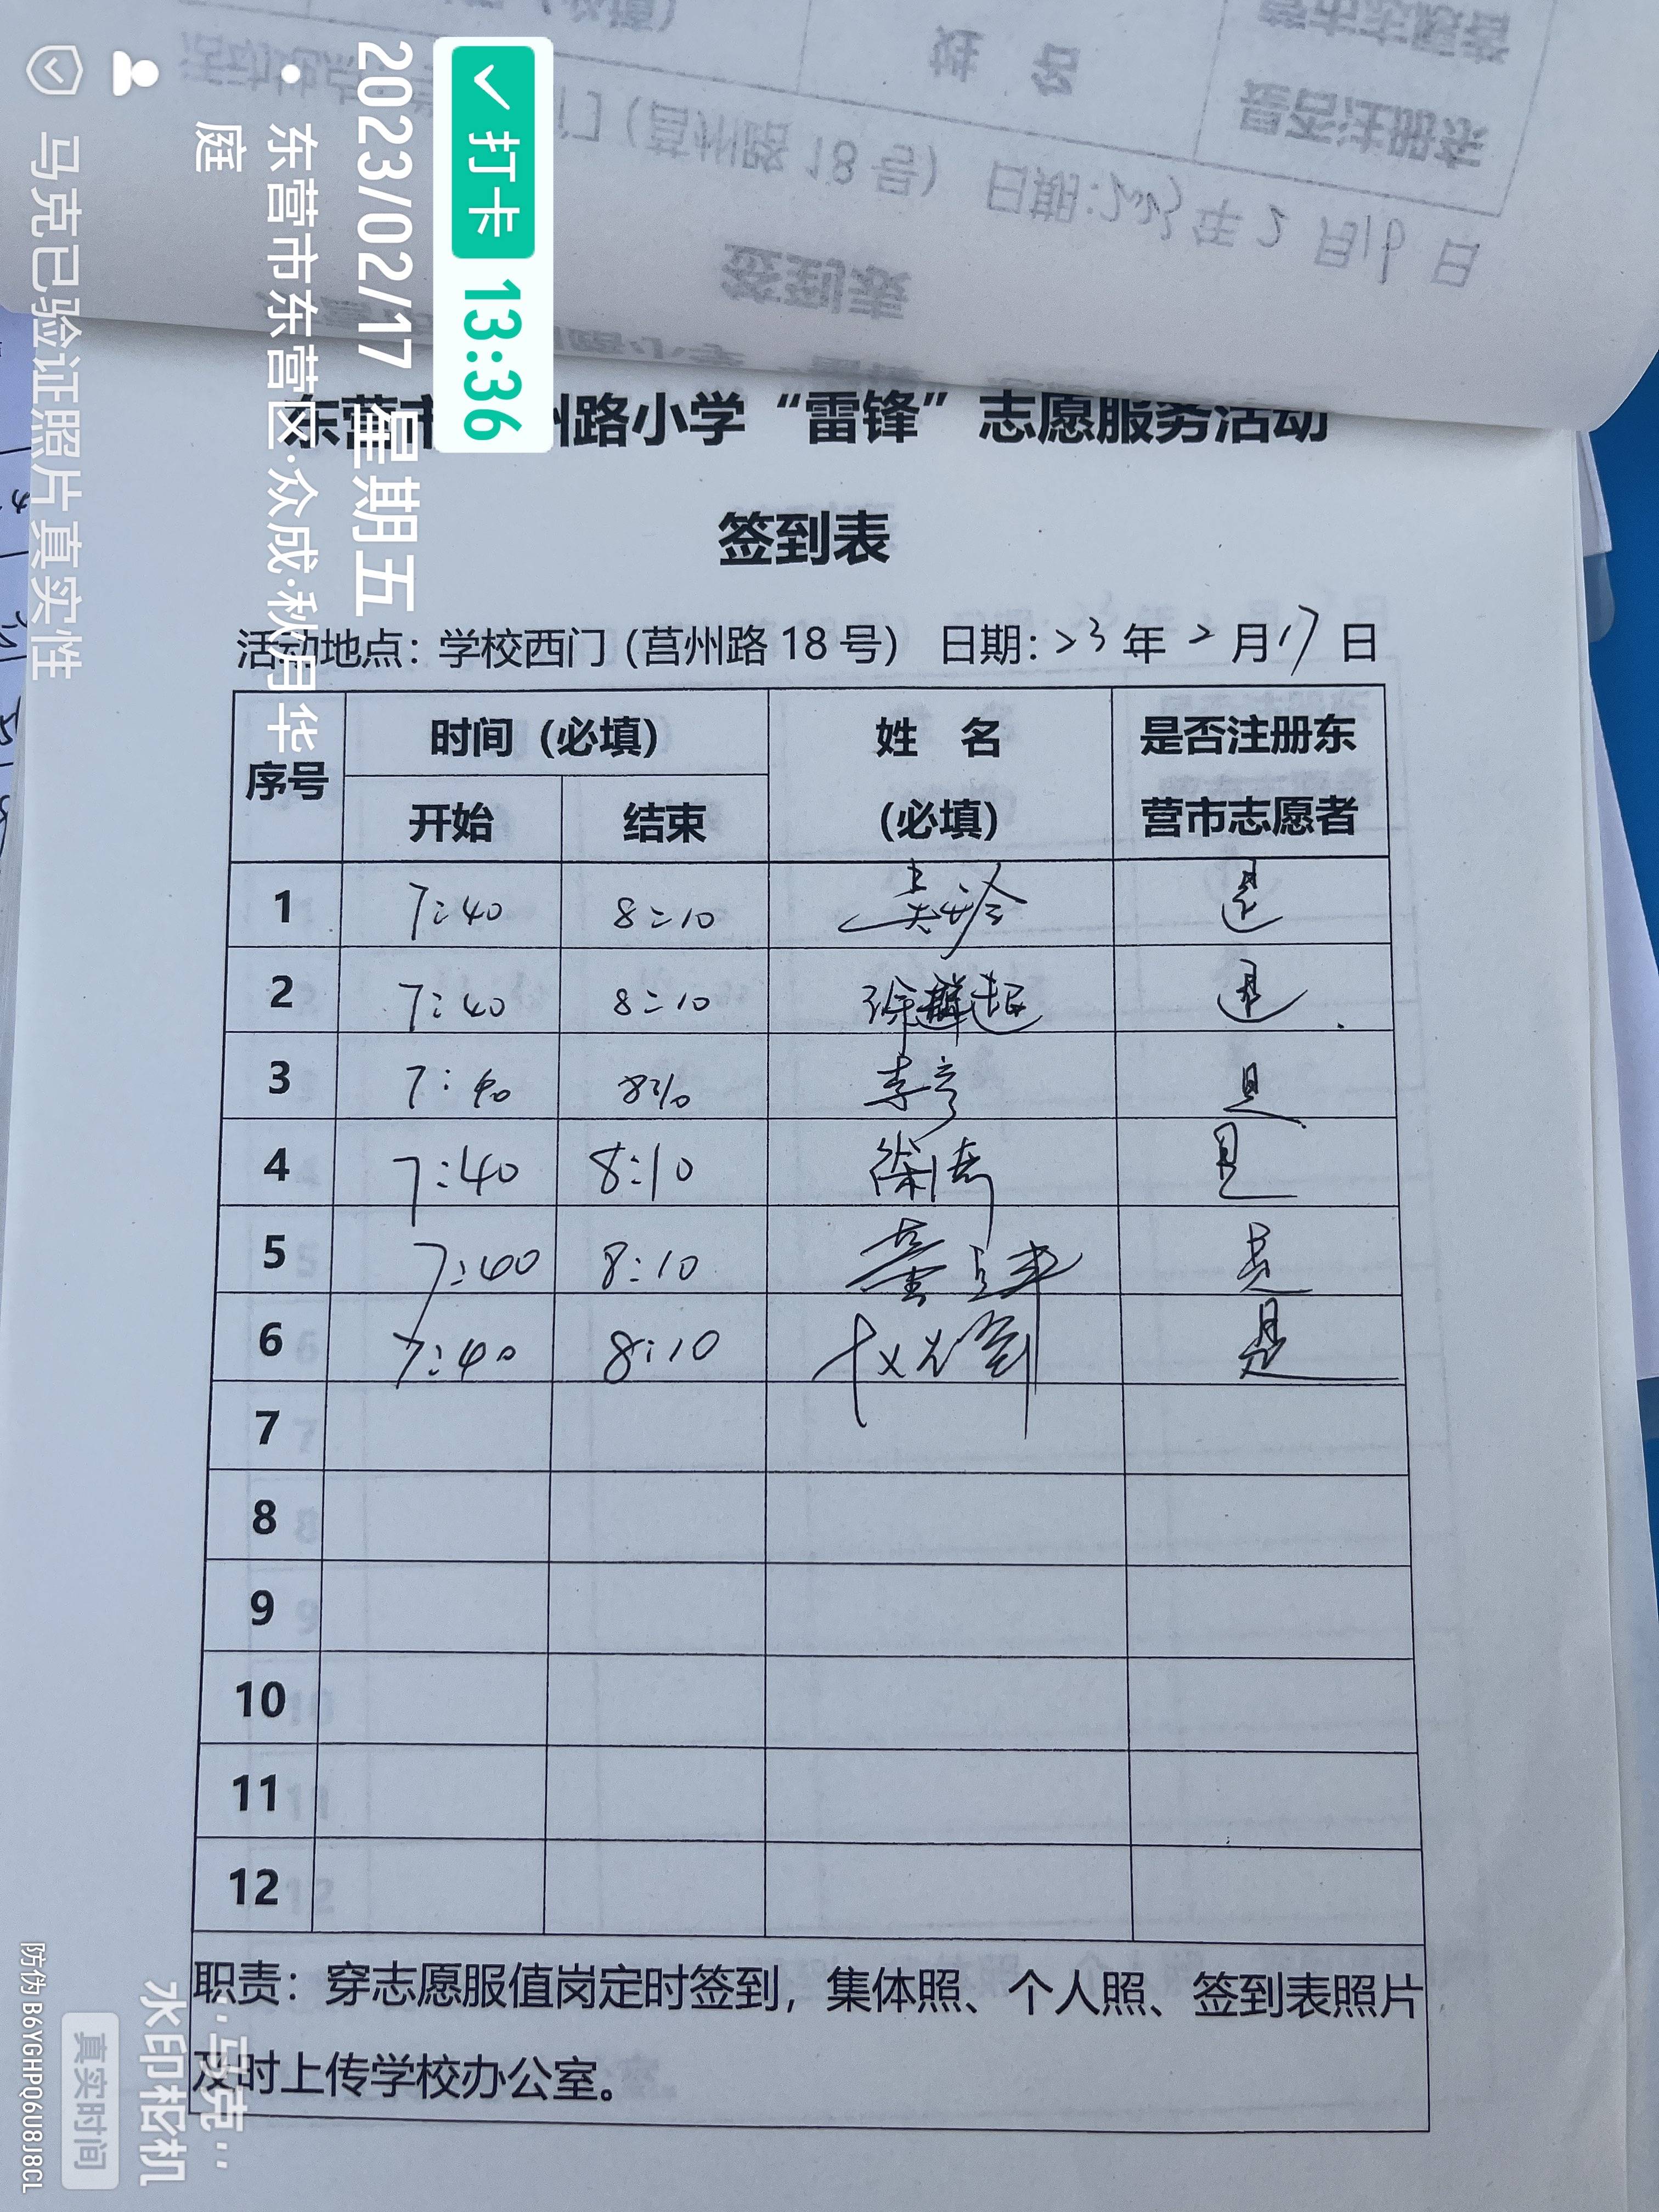 打卡 13:36
2023/02/17 星期五
东营市东营区·众成·秋月华
庭
马克已验证照片真实性
签到表
东营市 州路小学“雷锋”志愿服务活动
签到表
活动地点：学校西门（莒州路 18 号） 日期：23 年 2 月 17 日
序号 时间（必填） 姓 名（必填） 是否注册东营市志愿者
开始 结束
1 7:40 8:10 是
2 7:40 8:10 徐 是
3 7:40 8:10 李 是
4 7:40 8:10 是
5 7:40 8:10 董 是
6 7:40 8:10 是
7
8
9
10
11
12
职责：穿志愿服值岗定时签到，集体照、个人照、签到表照片
及时上传学校办公室。
马克
水印相机
真实时间
防伪 B6YGHPQ6U8J8CL